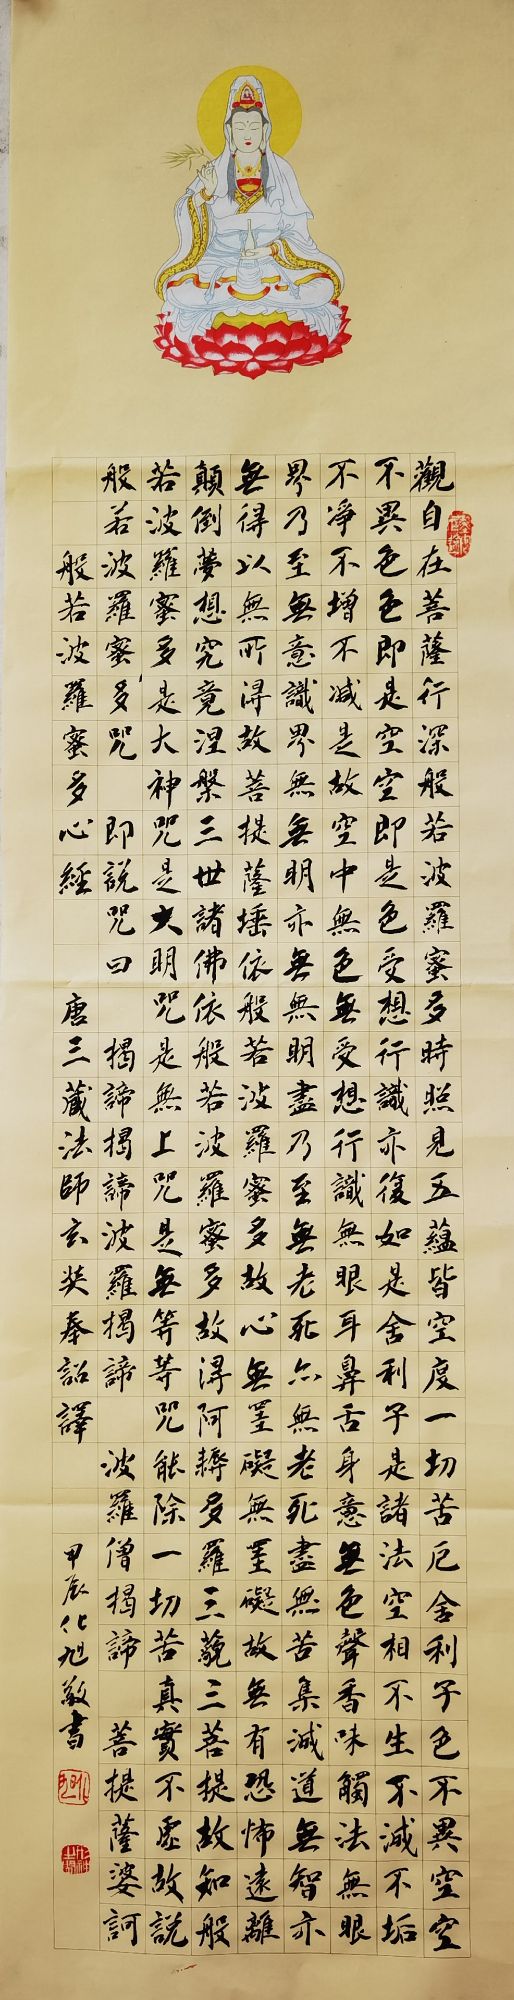 觀自在菩薩行深般若波羅蜜多時照見五蘊皆空度一切苦厄舍利子色不異空空
不異色色即是空空即是色受想行識亦復如是舍利子是諸法空相不生不滅不垢
不淨不增不減是故空中無色無受想行識無眼耳鼻舌身意無色聲香味觸法無眼
界乃至無意識界無無明亦無無明盡乃至無老死亦無老死盡無苦集滅道無智亦
無得以無所得故菩提薩埵依般若波羅蜜多故心無罣礙無罣礙故無有恐怖遠離
顛倒夢想究竟涅槃三世諸佛依般若波羅蜜多故得阿耨多羅三藐三菩提故知般
若波羅蜜多是大神咒是大明咒是無上咒是無等等咒能除一切苦真實不虛故說
般若波羅蜜多咒 即說咒曰 揭諦揭諦波羅揭諦 波羅僧揭諦 菩提薩婆訶
般若波羅蜜多心經 唐三藏法師玄奘奉詔譯 甲辰化旭敬書